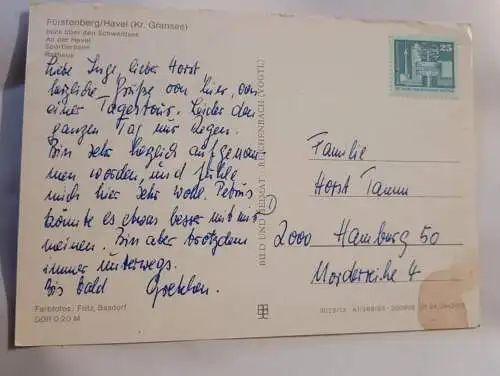 Fürstenberg/Havel (Kr. Gransee)
Blick über den Schwedtsee
An der Havel
Sportlerheim
Rathaus
Liebe Inge, lieber Horst
herzliche Grüße von hier, von
einer Tagestour. Leider den
ganzen Tag nur Regen.
Bin sehr herzlich aufgenom-
men worden, und fühle
mich hier sehr wohl. Petrus
könnte es etwas besser mit mir
meinen. Bin aber trotzdem
immer unterwegs.
Bis bald Gretchen.
Farbfotos: Fritz, Basdorf
DDR 0,20 M
BILD UND HEIMAT REICHENBACH (VOGTL)
25
Familie
Horst Tamm
2000 Hamburg 50
4